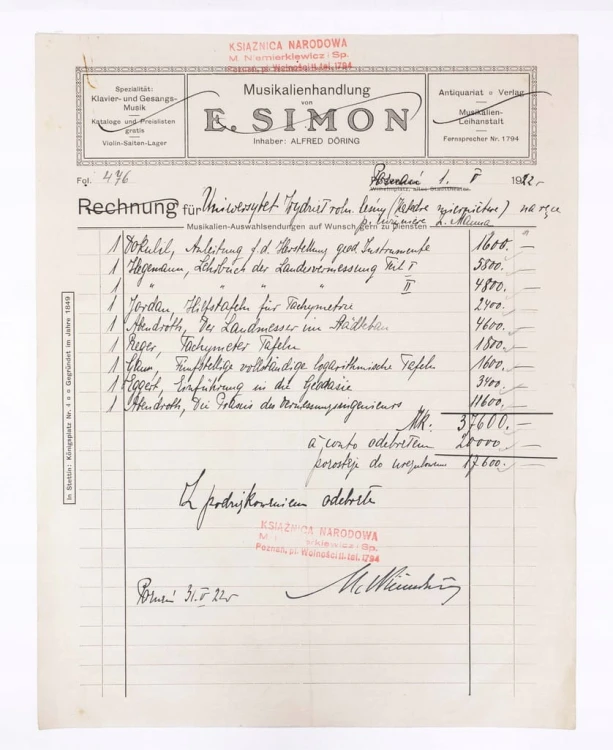 KSIĄŻNICA NARODOWA
M. Niemierkiewicz i Sp.
Poznań, pl. Wolności 11. tel. 1794
Spezialität:
Klavier- und Gesangs-
Musik
Kataloge und Preislisten
gratis
Violin-Saiten-Lager
Musikalienhandlung
von
E. SIMON
Inhaber: ALFRED DÖRING
Antiquariat Verlag
Musikalien-
Leihanstalt
Fernsprecher Nr. 1794
Fol. 476
Poznań 1. V 1922
Rechnung für Uniwersytet Wydział roln. leśny (Katedra miernictwa) na ręce
Musikalien-Auswahlsendungen auf Wunsch gern zu diensten
1 Dokulil, Anleitung f. d. Herstellung geod. Instrumente 1600.—
1 Hegemann, Lehrbuch der Landesvermessung Teil I 5800.—
1 " " " " II 4800.—
1 Jordan Hilfstafeln für Tachymetrie 2400.—
1 Abendroth, Der Landmesser im Städtebau 4600.—
1 Reger, Tachymeter Tafeln 1800.—
1 Fünfstellige vollständige logarithmische Tafeln 1600.—
1 Eggert, Einführung in die Geodäsie 3400.—
1 Abendroth, Die Praxis des Vermessungsingenieurs 11600.—
Mk: 37600.—
a conto odebrałem 20000.—
pozostaje do uregulowania 17600.—
Z podziękowaniem odebrał
KSIĄŻNICA NARODOWA
M. Niemierkiewicz i Sp.
Poznań, pl. Wolności 11. tel. 1794
Poznań 31. V 22
In Stettin: Königsplatz Nr. 4 Gegründet im Jahre 1849